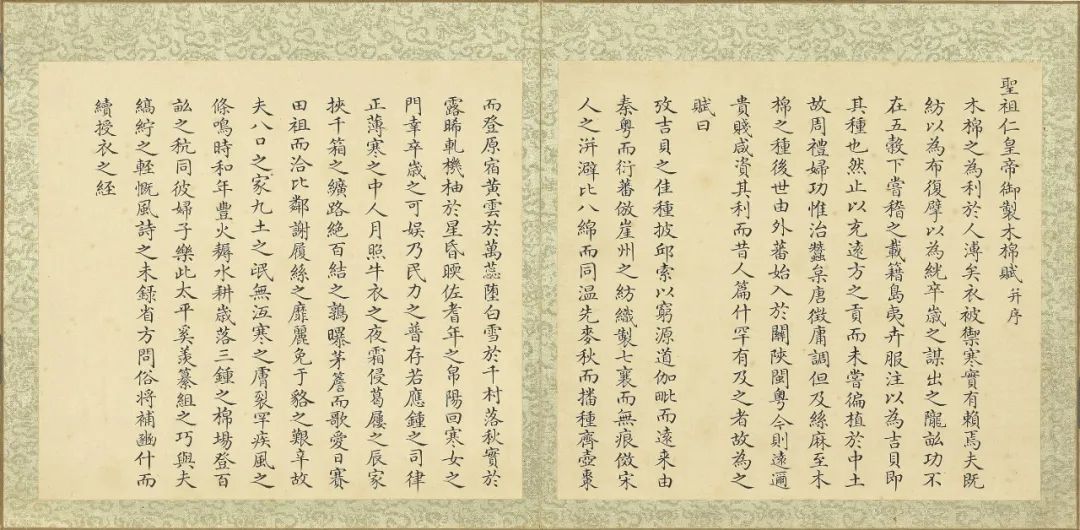 聖祖仁皇帝御製木棉賦并序
木棉之為利於人溥矣衣被禦寒實有賴焉夫既
紡以為布復擘以為絖卒歲之謀出之隴畝功不
在五穀下嘗稽之載籍島夷卉服注以為吉貝即
其種也然止以充遠方之貢而未嘗徧植於中土
故周禮婦功惟治蠶枲唐徵庸調但及絲麻至木
棉之種後世由外蕃始入於關陝閩粵今則遠邇
貴賤咸資其利而昔人篇什罕有及之者故為之
賦曰
攷吉貝之佳種披邱索以窮源道伽毗而遠来由
秦粵而衍蕃倣崖州之紡織製七襄而無痕傚宋
人之洴澼比八綿而同溫先麥秋而播種齊壺棗
而登原宿黃雲於萬蕊墮白雪於千村落秋實於
露晞軋機柚於星昏腝佐耆年之帛陽回寒女之
門幸卒歲之可娛乃民力之普存若應鍾之司律
正薄寒之中人月照牛衣之夜霜侵葛屨之辰家
挾千箱之纊路絕百結之鶉曝茅簷而歌愛日賽
田祖而洽比鄰謝履絲之靡麗免于貉之艱辛故
夫八口之家九土之氓無沍寒之膚裂罕疾風之
條鳴時和年豐火耨水耕歲落三鍾之棉場登百
畝之秔同彼婦子樂此太平奚羨纂組之巧與夫
縞紵之輕慨風詩之未錄省方問俗将補豳什而
續授衣之經